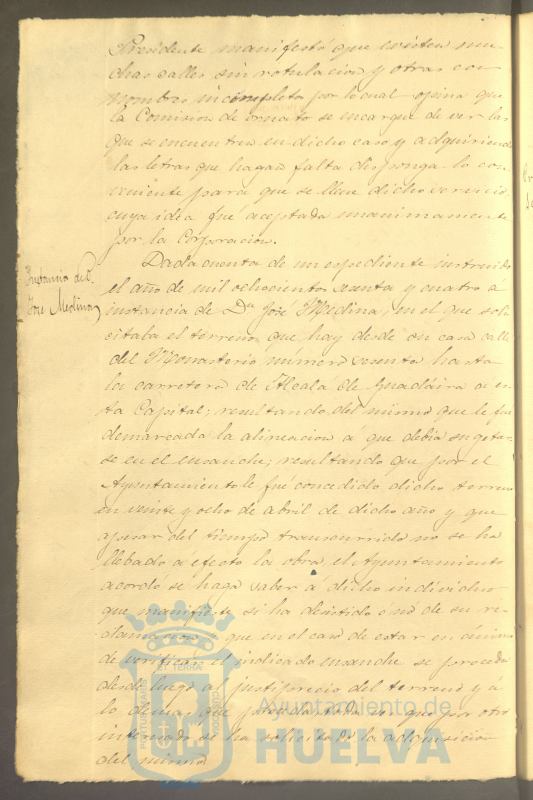 Presidente manifestó que existen mu-
chas calles sin rotulacion y otras con
nombres incompletos por lo cual opina que
la Comision de ornato se encargue de ver las
que se encuentren en dicho caso y adquiriendo
las letras que hagan falta disponga lo con-
veniente para que se lleve dicho servicio,
cuya idea fué aceptada unanimamente
por la Corporacion.
Instancia de D.
José Medina
Dada cuenta de un espediente instruido
el año de mil ochocientos sesenta y cuatro á
instancia de Dn José Medina, en el que soli
citaba el terreno que hay desde su casa calle
del Monasterio número sesenta hasta
la carretera de Alcalá de Guadaira a es-
ta Capital; resultando del mismo que le fué
demarcada la alineacion á que debia sugetar-
se en el ensanche; resultando que por el
Ayuntamiento le fué concedido dicho terreno
en veinte y ocho de abril de dicho año y que
apesar del tiempo transcurrido no se ha
llebado á efecto la obra, el Ayuntamiento
acordó se haga saber á dicho individuo
que manifieste si ha desistido ó nó de su re-
clamacion y que en el caso de estar en ánimo
de verificar el indicado ensanche se proceda
desde luego al justiprecio del terreno y á
lo demas que proceda toda vez que por otro
interesado se ha solicitado la adquisicion
del mismo
Ayuntamiento de
HUELVA